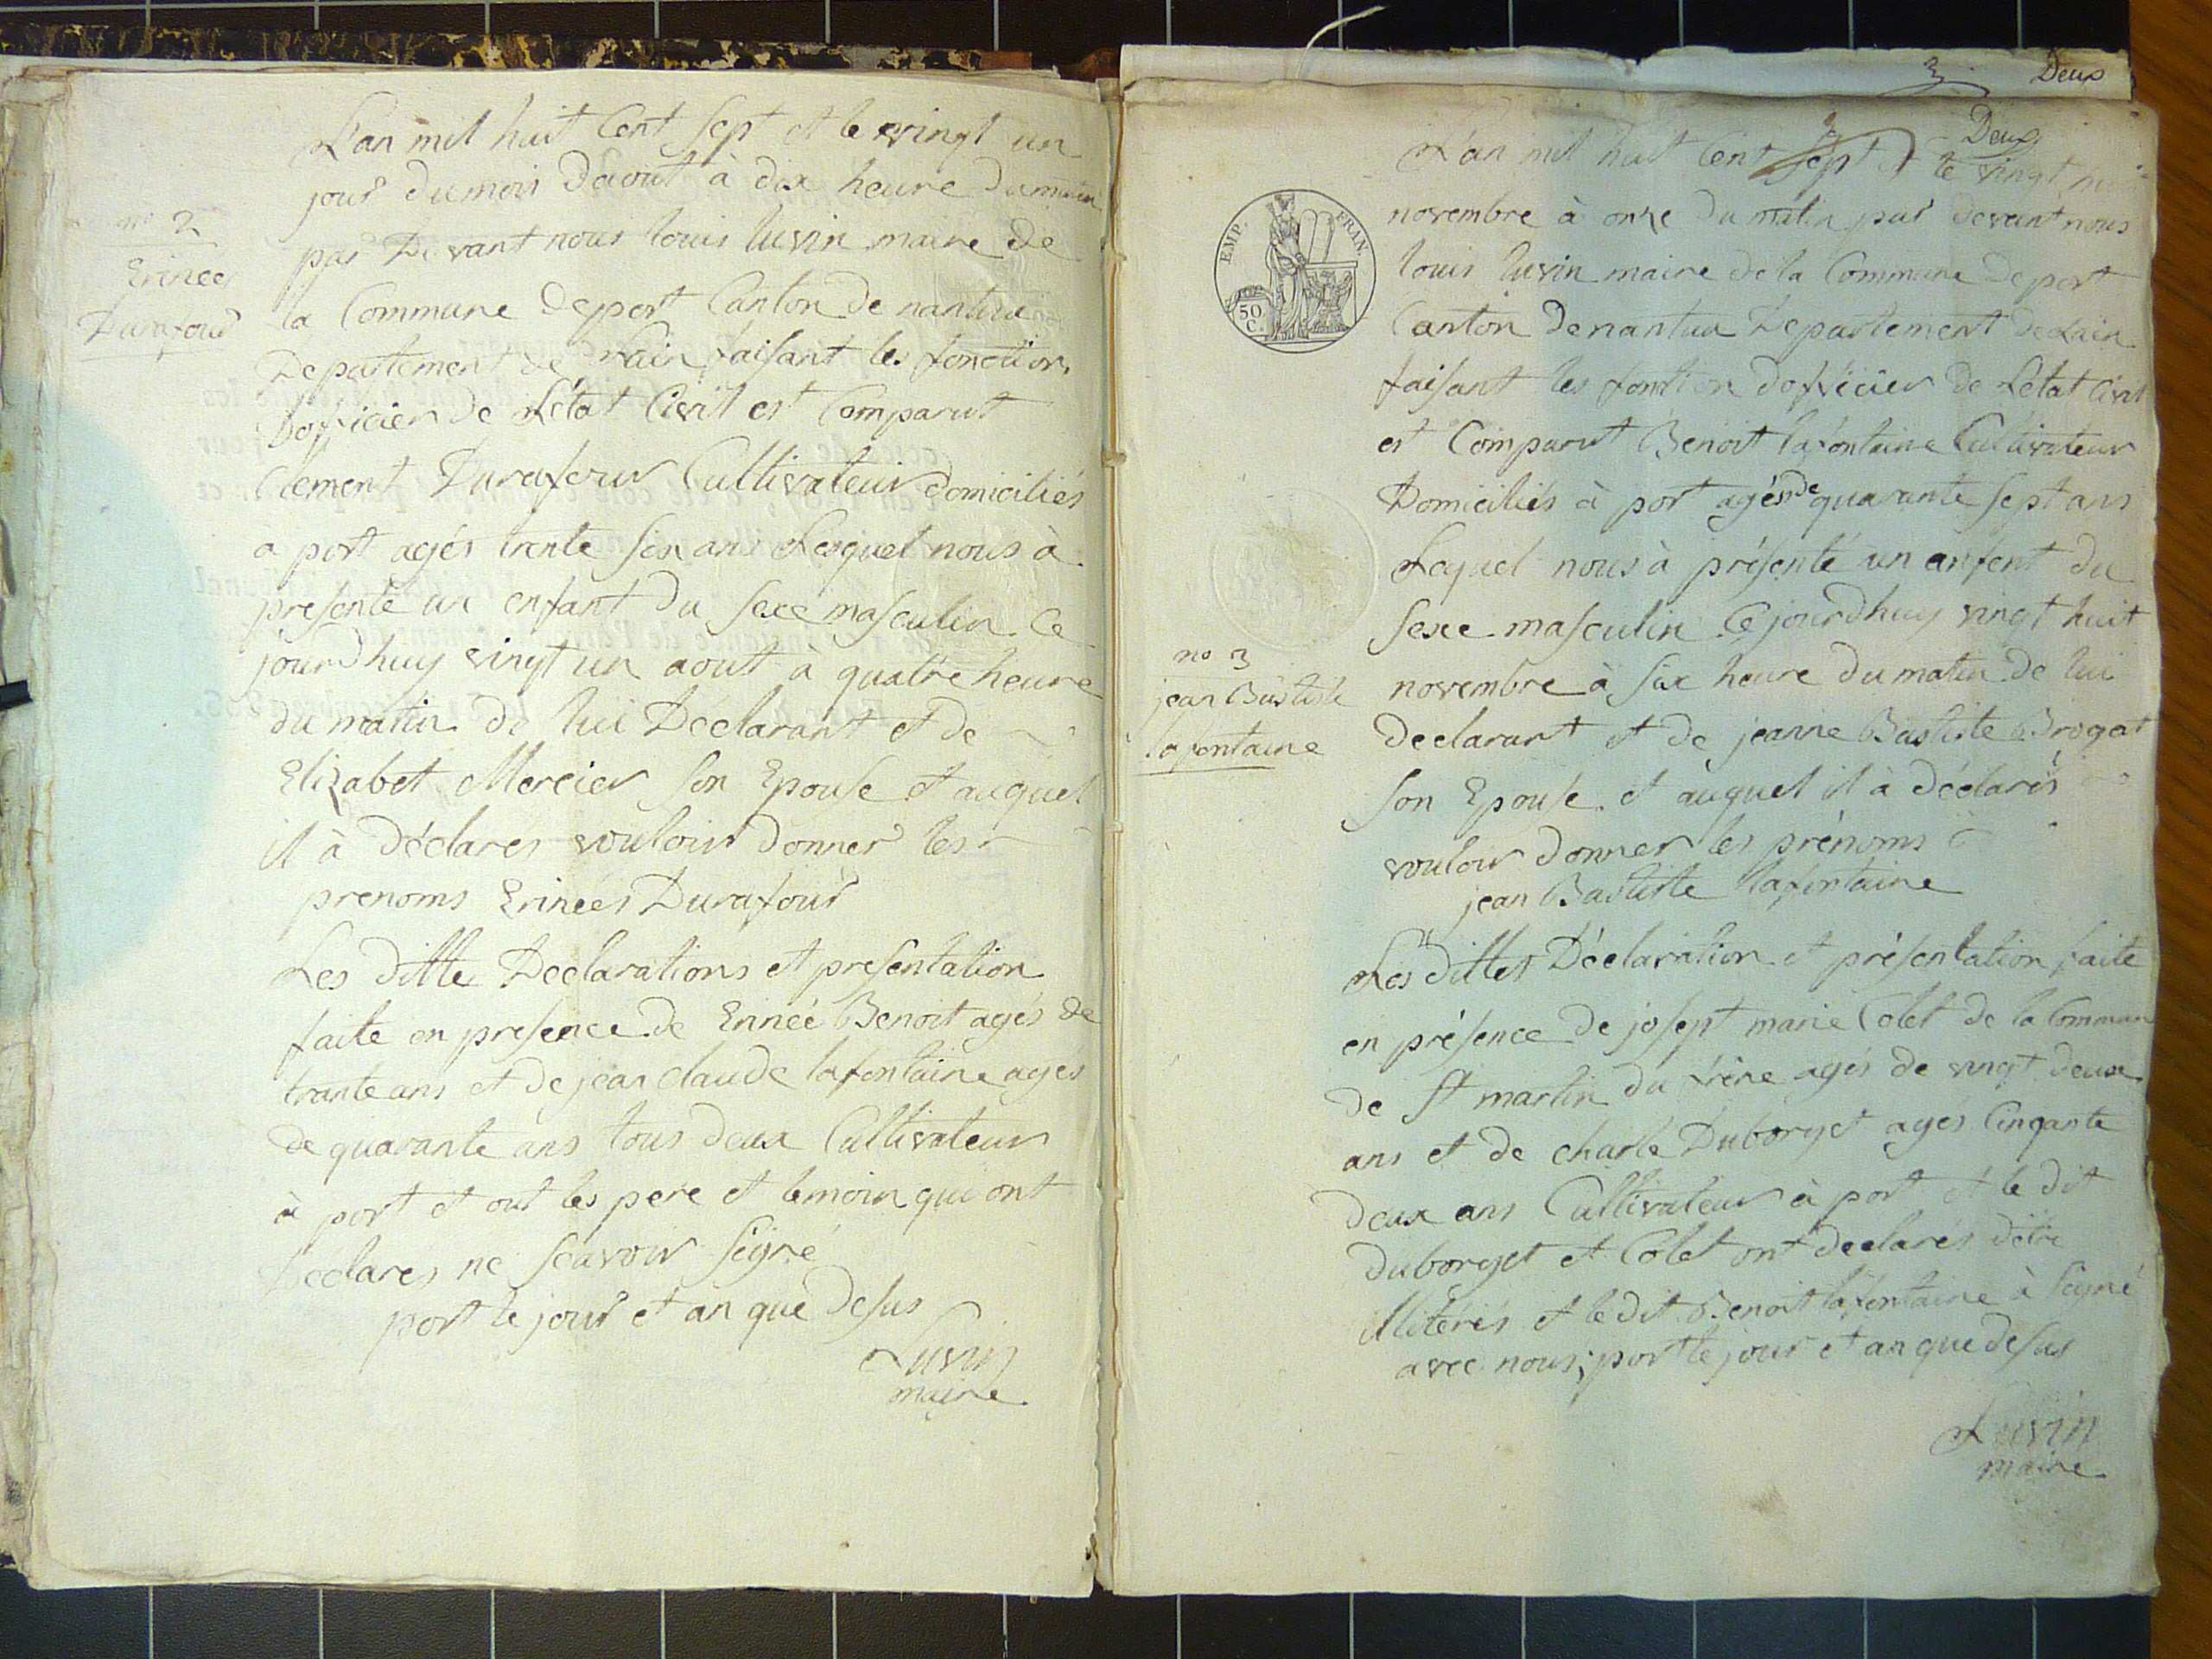 L'an mil huit Cent sept et le vingt un
jour du mois Daout à dix heure du matin
par Devant nous louis luvin maire de
la Commune de port Canton de nantua
Departement de Lain faisant les fonction
Doficier de Létat Civil est Comparut
Clement Durafour Cultivateur domiciliés
a port agés trente six ans Lequel nous à
presenté un enfant du sexe masculin Ce
jourdhuy vingt un aout à quatre heure
du matin de lui Déclarant et de
Elizabet Mercier son Epouse et auquel
il à déclarés vouloir donner les
prenoms Erinées Durafour
Les ditte Declarations et presentation
faite en presence de Erinée Benoit agés de
trante ans et de jean claude lafontaine agés
de quarante ans tous deux Cultivateur
à port et ont les pere et temoin qui ont
Déclarés ne scavoir signé
port le jour et an que desus
Luvin
maire
no 2
Erinées
Durafour
3 Deux
Deux
L'an mil huit Cent sept et le vingt
novembre à onze du matin par devant nous
louis luvin maire de la Commune de port
Canton de nantua Departement de Lain
faisant les fonction dofficier de Létat Civil
est Comparut Benoit lafontaine Cultivateur
Domiciliés à port agés de quarante sept ans
Lequel nous à présenté un anfent du
sexe masculin Ce jourdhuy vingt huit
novembre à six heure du matin de lui
declarant et de jeanne Bastiste Brogat
son Epouse et auquel il à déclarés
vouloir donner les prénoms
jean Bastiste lafontaine
Les dittes Déclaration et présentation faite
en présence de josept marie Colet de la Commune
de st martin du frêne agés de vingt deux
ans et de charle Duborget ages Cinqante
deux ans Cultivateur à port et le dit
duborget et Colet ont declarés dêtre
illitérés et le dit Benoit lafontaine à signé
avec nous; port le jour et an que desus
Luvin
maire
EMP. FRAN.
50
C.
no 3
jean Bastiste
lafontaine